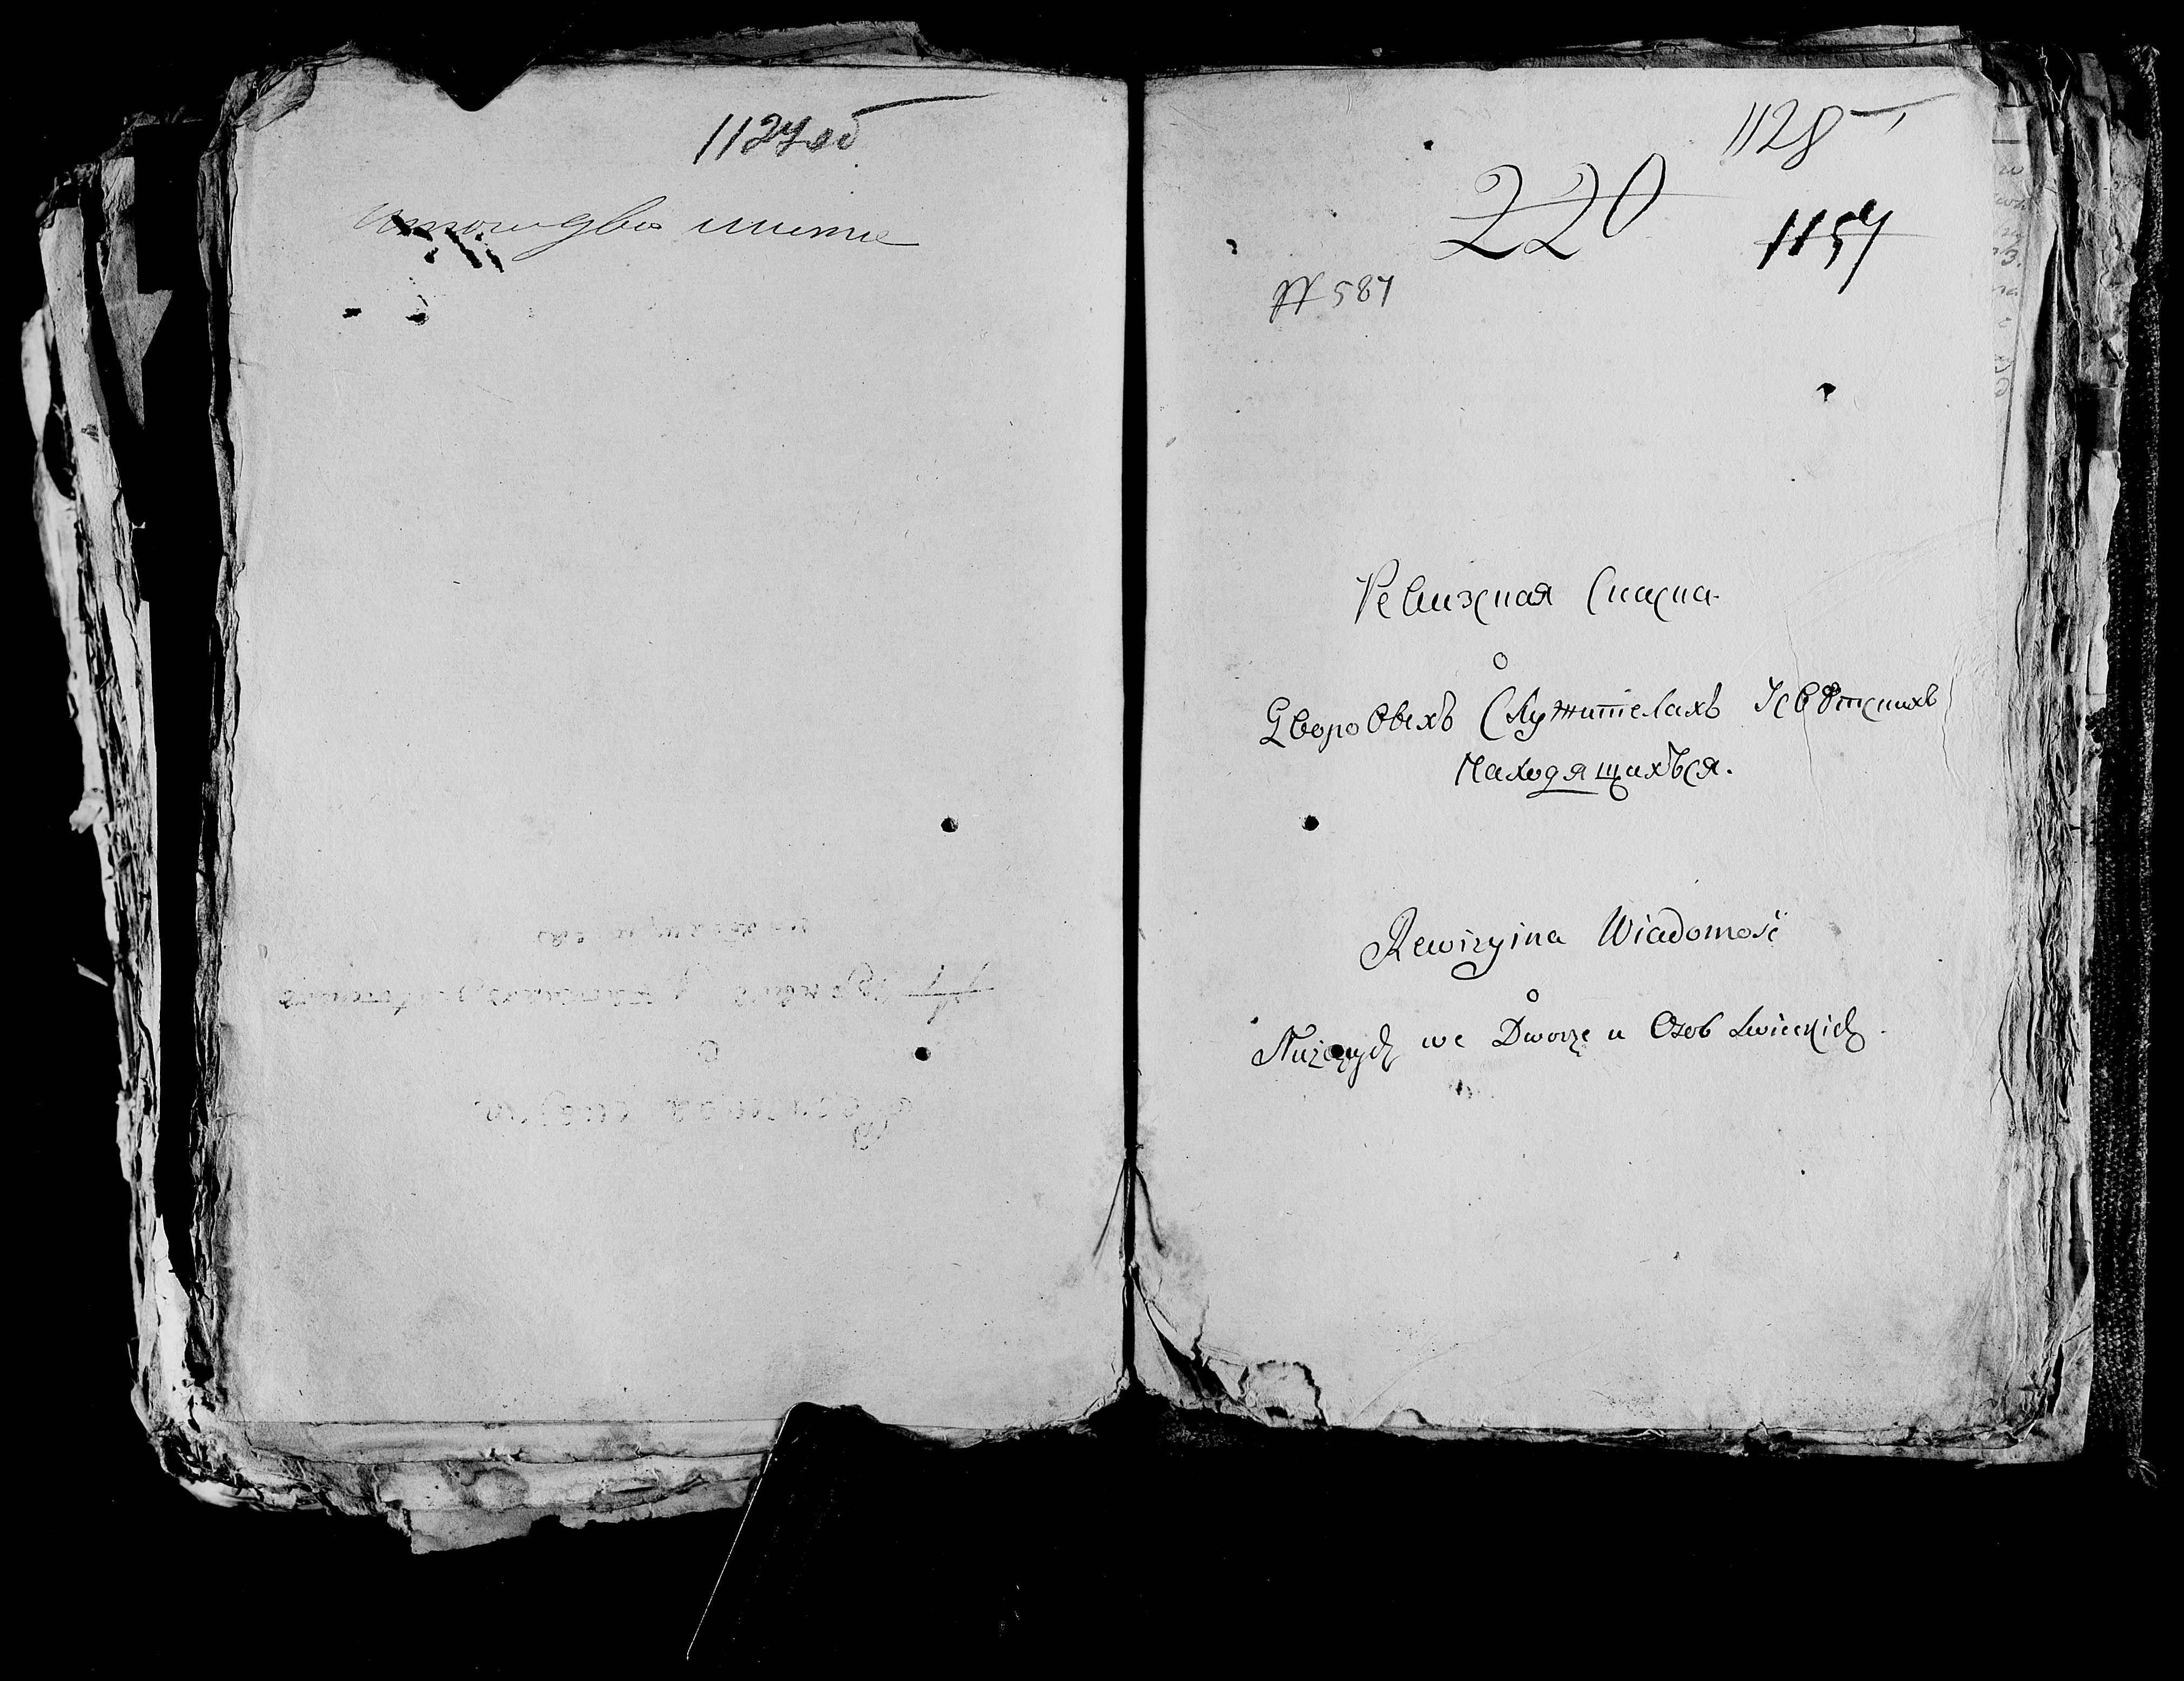 1127 об
1128
220
1157
№ 587
Ревизская Сказка
о
Дворовыхъ Служителахъ У Свѣтскихъ
Находящахъся.
Rewizyina Wiadomość
o
Służących we Dworze u Osob Swieckich.